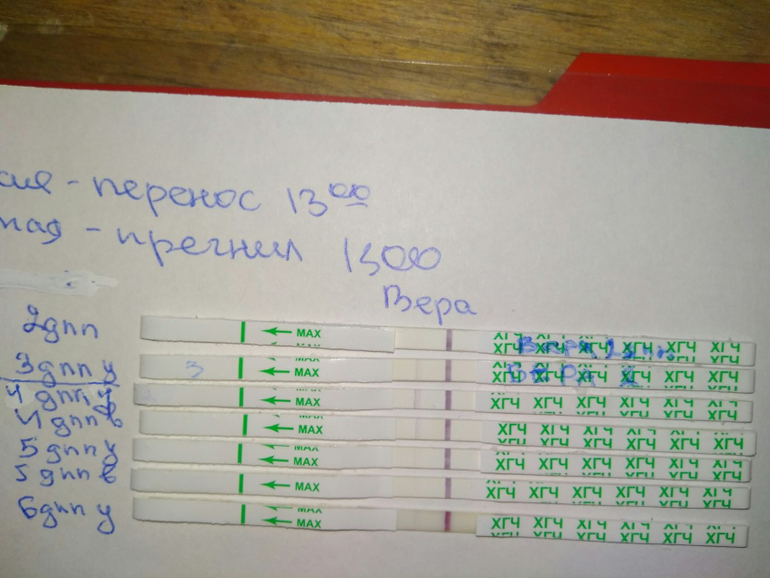 перенос 13 00
прегнил 1500
Вера
2дпп
MAX
ХГЧ ХГЧ ХГЧ ХГЧ ХГЧ ХГЧ
3дпп у
3
MAX
ХГЧ ХГЧ ХГЧ ХГЧ ХГЧ ХГЧ
4дпп у
MAX
ХГЧ ХГЧ ХГЧ ХГЧ ХГЧ ХГЧ
4дпп в
MAX
ХГЧ ХГЧ ХГЧ ХГЧ ХГЧ ХГЧ
5дпп у
MAX
ХГЧ ХГЧ ХГЧ ХГЧ ХГЧ ХГЧ
5дпп в
MAX
ХГЧ ХГЧ ХГЧ ХГЧ ХГЧ ХГЧ
6дпп у
MAX
ХГЧ ХГЧ ХГЧ ХГЧ ХГЧ ХГЧ